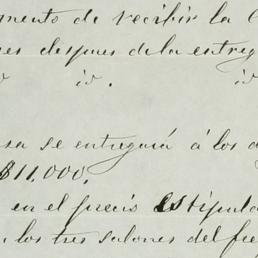 mento de recibir la C
es despues de la entreg
id. id
sa se entregará á los d
$11.000.
en el precio estipula
los tres salones del